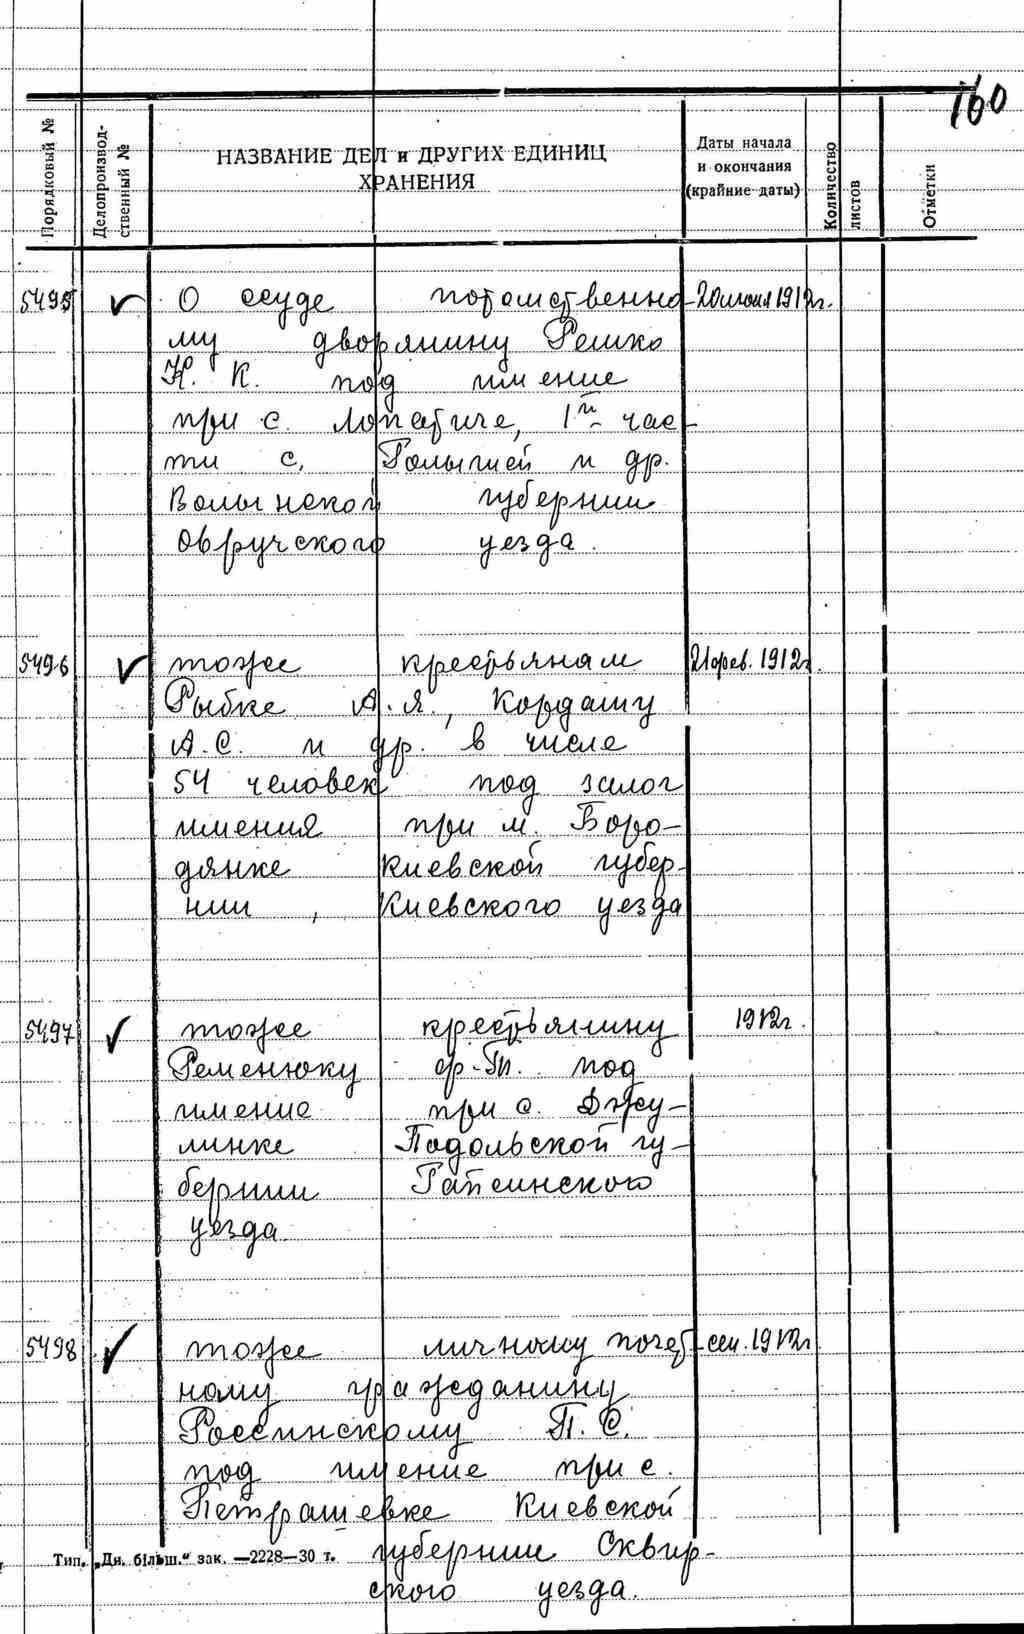 160
Порядковый №
Делопроизвод-
ственный №
НАЗВАНИЕ ДЕЛ и ДРУГИХ ЕДИНИЦ
ХРАНЕНИЯ
Даты начала
и окончания
(крайние даты)
Количество
листов
Отметки
5495 О ссуде потомственно- 20 июня 1912г.
му дворянину Решко
Н. К. под имение
при с. Лопатиче, 1й час-
ти с. Голышей и др.
Волынской губернии
Овручского уезда.
5496 тоже крестьянам 21 фев. 1912г.
Рыбке А.Я., Кордашу
А.С. и др. в числе
54 человек под залог
имения при м. Боро-
дянке Киевской губер-
нии, Киевского уезда
5497 тоже крестьянину 1912г.
Ременюку Ф.П. под
имение при с. Джу-
линке Подольской гу-
бернии Гайсинского
уезда.
5498 тоже личному почет- сен. 1912г
ному гражданину
Россинскому П. С.
под имение при с.
Петрашевке Киевской
губернии Сквир-
ского уезда.
Тип. „Дн. більш.“ зак. —2228—30 т.